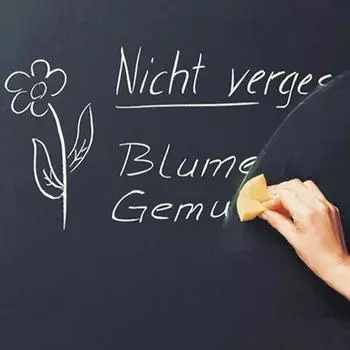 Nicht verges
Blume
Gemu